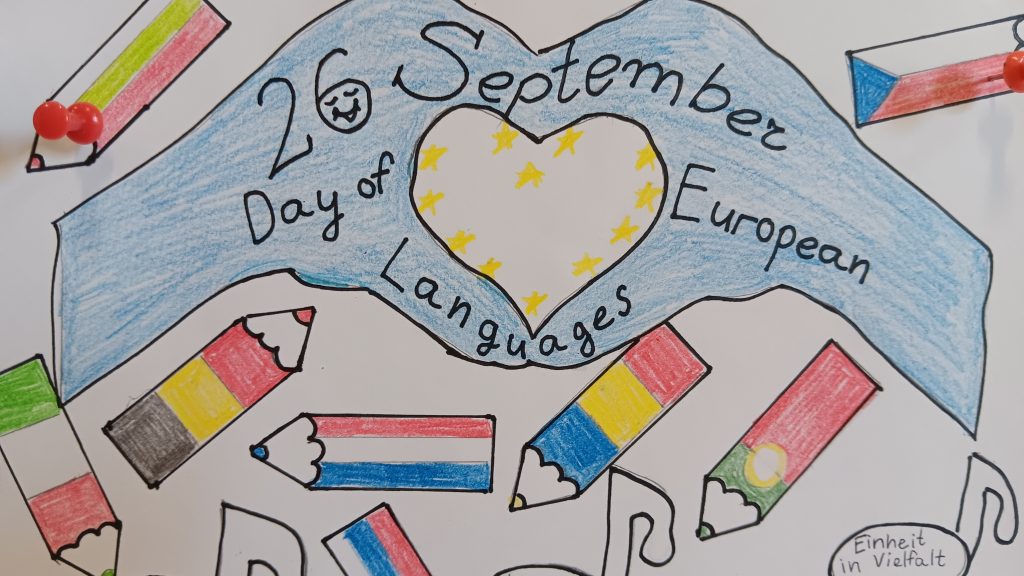 26 September
Day of European
Languages
Einheit
in Vielfalt